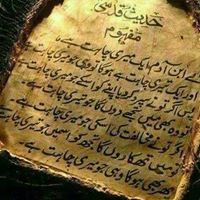 حدیث قدسی
مفہوم
اے ابن آدم ایک تیری چاہت ہے
اور ایک میری چاہت ہے ہوگا تو وہی جو میری چاہت ہے
پس اگر تو نے سپرد کیا اپنے کو اسکے جو میری چاہت ہے
تو وہ بھی میں تجھے دوں گا جو تیری چاہت ہے
اگر تو نے مخالفت کی اسکی جو میری چاہت ہے
تو میں تھکا دوں گا تجھ کو اسمیں جو تیری چاہت ہے
پھر بھی ہوگا وہی جو میری چاہت ہے